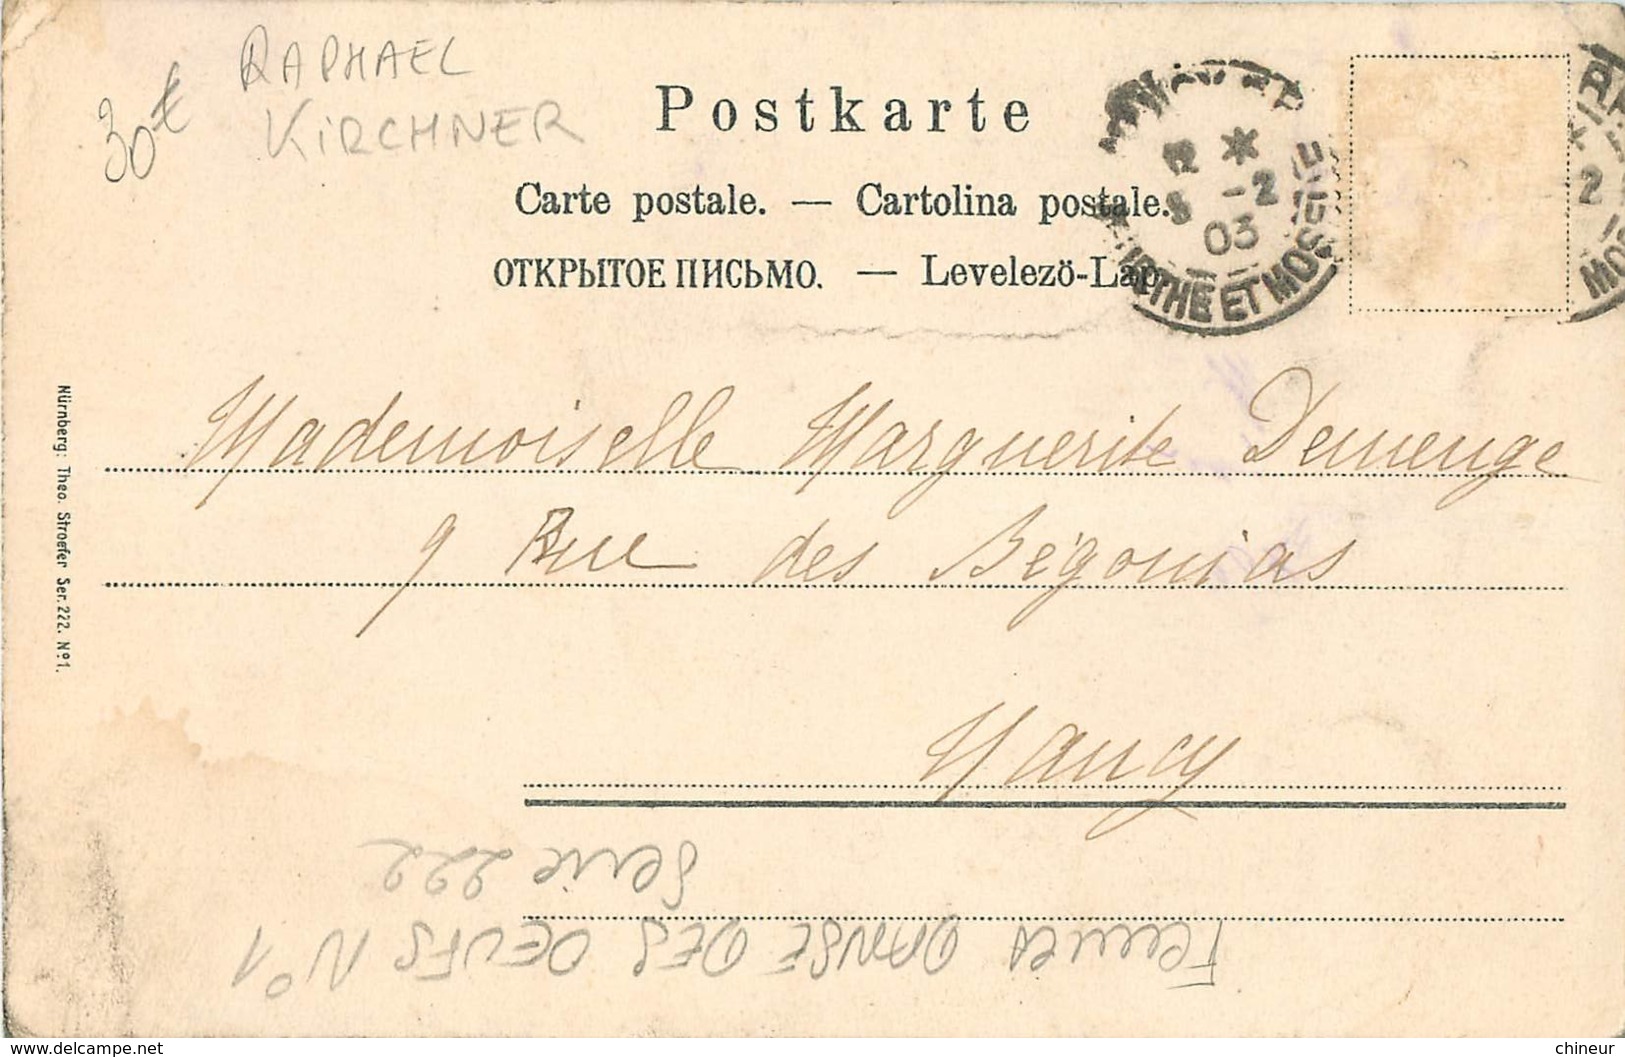 RAPHAEL
KIRCHNER
30€
Postkarte
Carte postale. — Cartolina postale.
ОТКРЫТОЕ ПИСЬМО. — Levelezö-Lap.
12 *
8 -2
03
MEURTHE ET MOSELLE
2
MO
Mademoiselle Marguerite Demenge
9 Rue des Bégonias
Nancy
Nürnberg: Theo. Stroefer Ser. 222. Nº1.
Femmes DANSE DES OEUFS N°1
Serie 222
www.delcampe.net
chineur